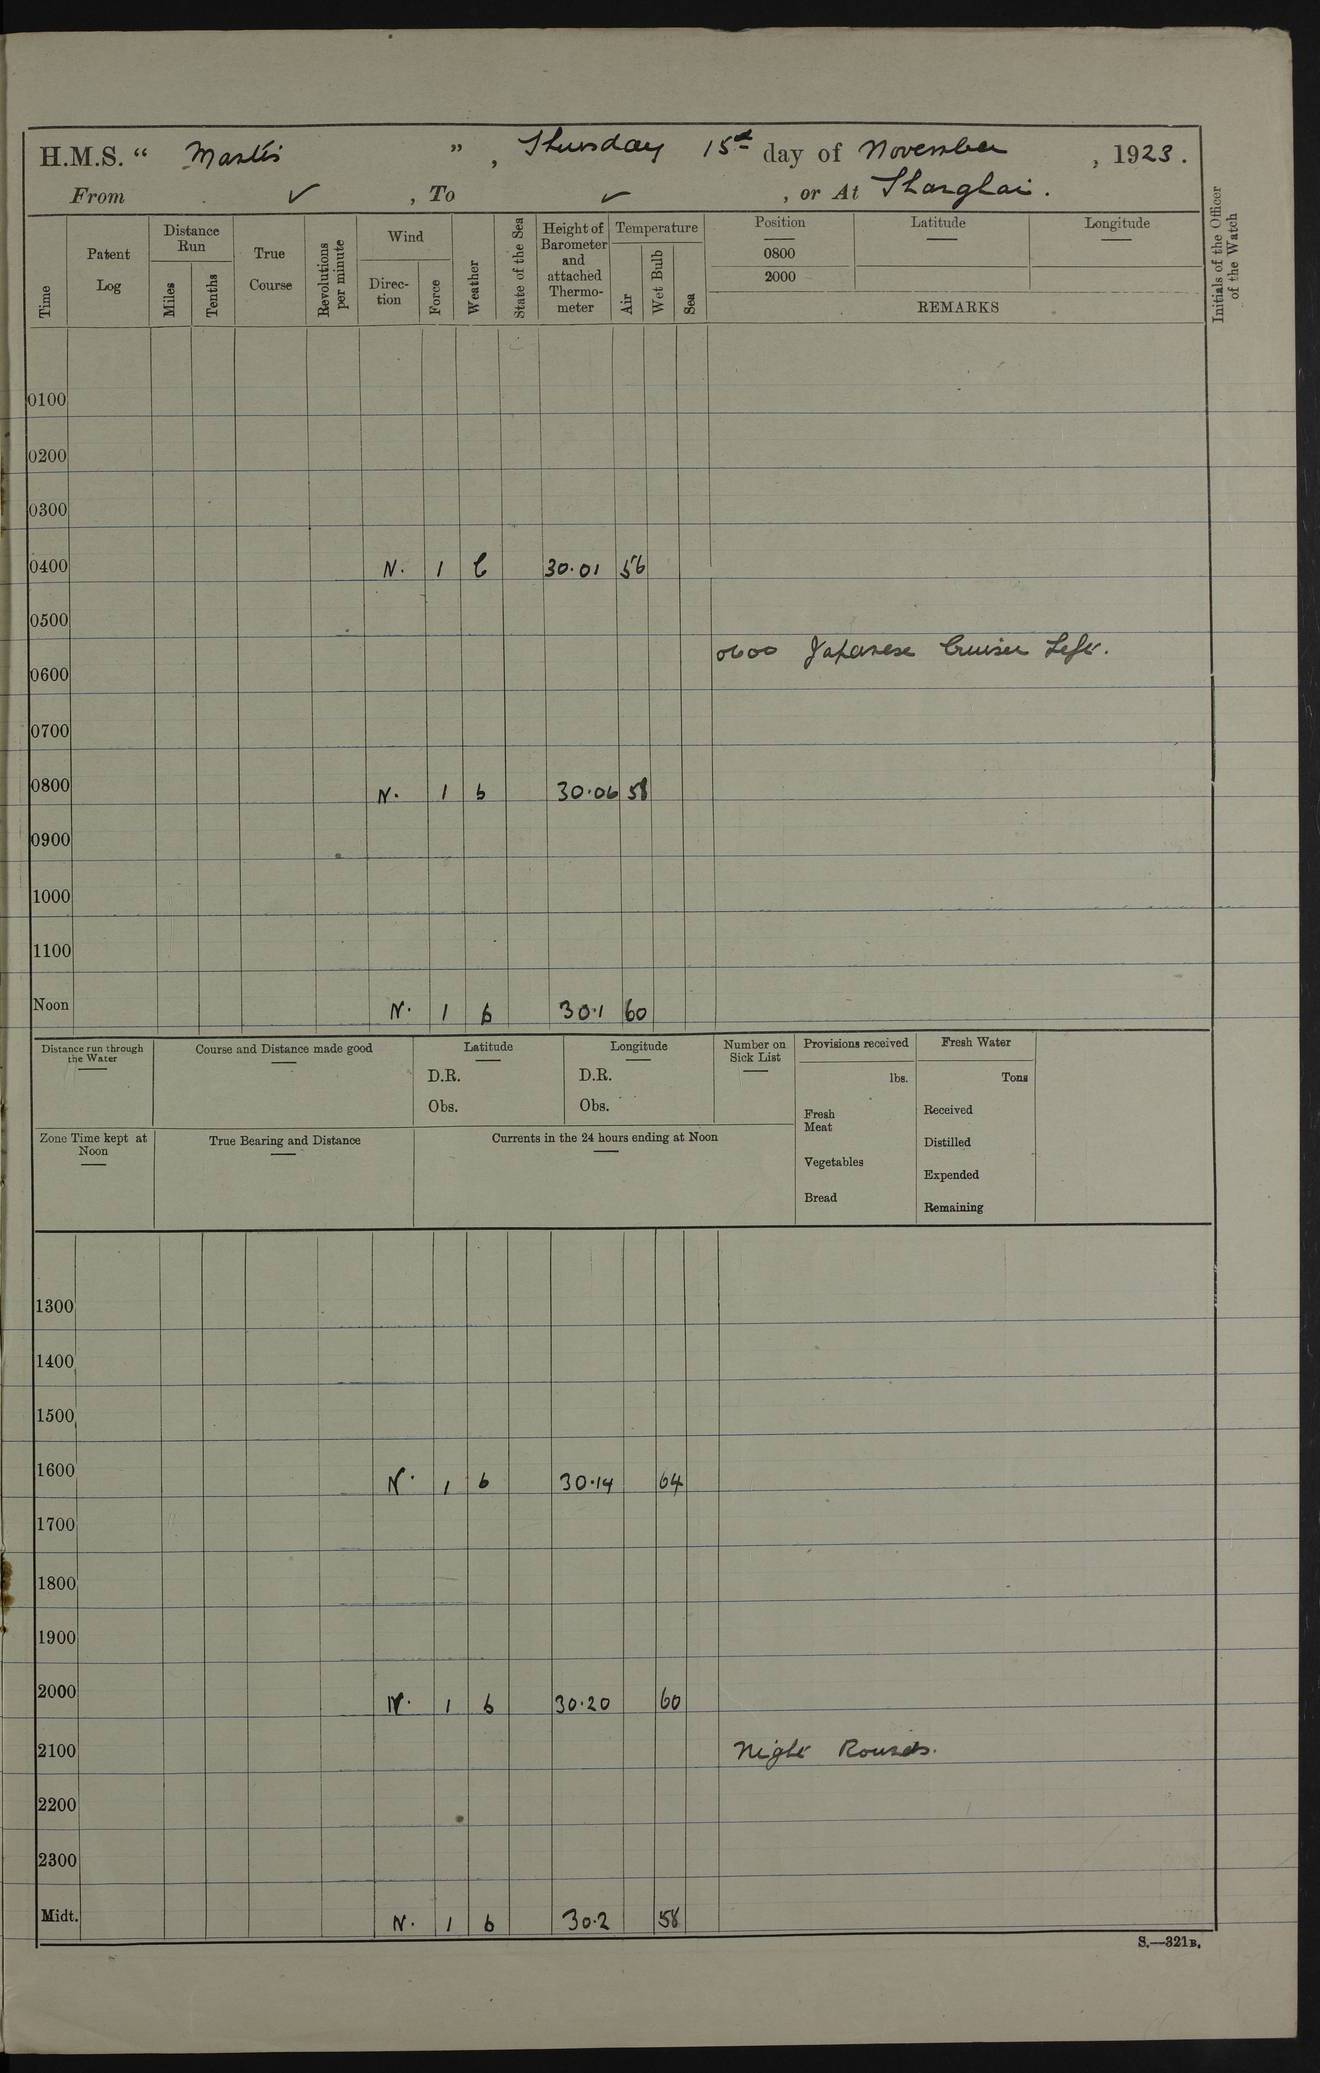 H.M.S. " Mantis ", Thursday 15th day of November, 1923.
From ✓, To ✓, or At Shanghai.
Time
Patent Log
Distance Run
Miles
Tenths
True Course
Revolutions per minute
Wind
Direction
Force
Weather
State of the Sea
Height of Barometer and attached Thermometer
Temperature
Air
Wet Bulb
Sea
Position
Latitude
Longitude
0800
2000
REMARKS
Initials of the Officer of the Watch
0100
0200
0300
0400 N. 1 b 30.01 56
0500
0600 Japanese Cruiser Left.
0600
0700
0800 N. 1 b 30.06 58
0900
1000
1100
Noon N. 1 b 30.1 60
Distance run through the Water
Course and Distance made good
Latitude
D.R.
Obs.
Longitude
D.R.
Obs.
Number on Sick List
Provisions received
lbs.
Fresh Meat
Vegetables
Bread
Fresh Water
Tons
Received
Distilled
Expended
Remaining
Zone Time kept at Noon
True Bearing and Distance
Currents in the 24 hours ending at Noon
1300
1400
1500
1600 N. 1 b 30.14 64
1700
1800
1900
2000 N. 1 b 30.20 60
2100 Night Rounds.
2200
2300
Midt. N. 1 b 30.2 58
S.—321B.